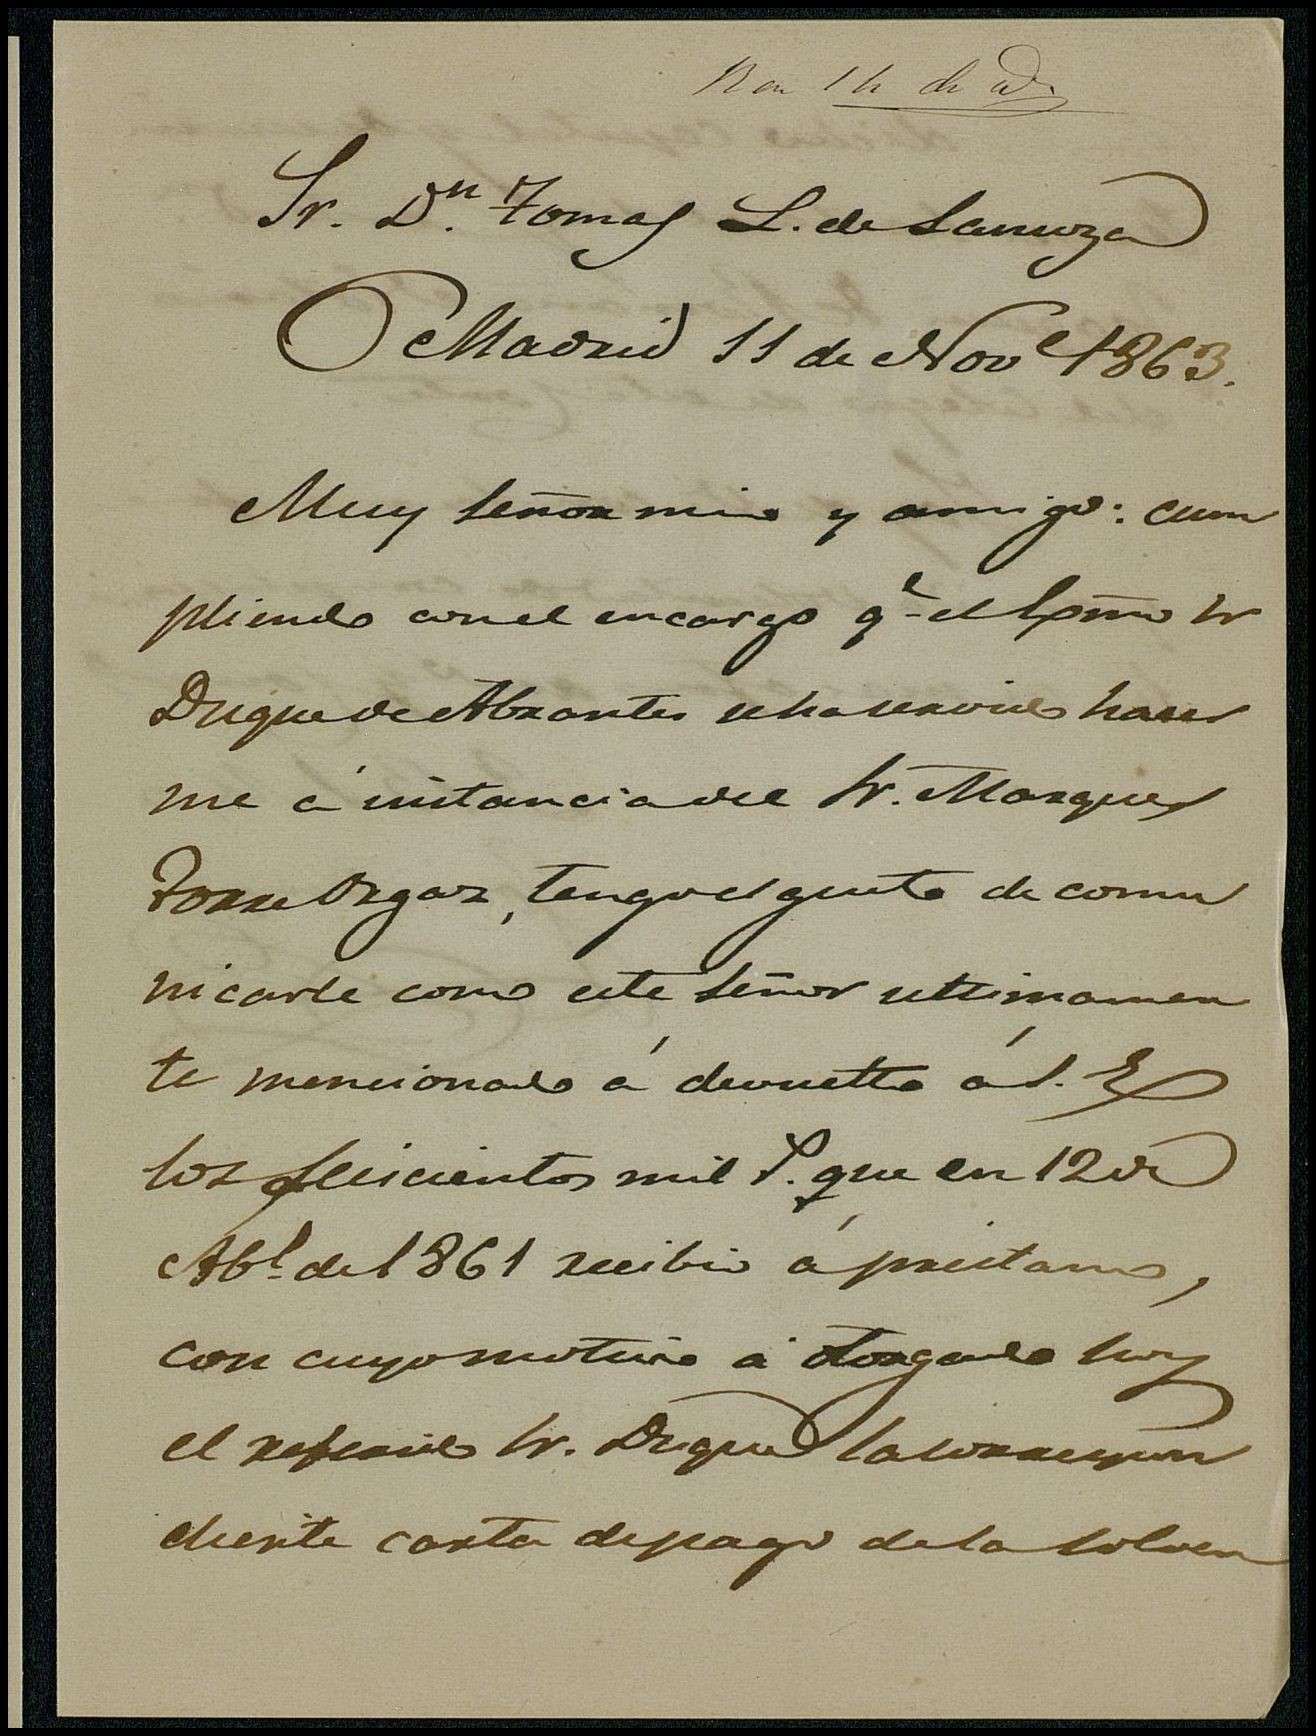 Sr. Dn. Tomas L. de Sanuza
Madrid 11 de Nove 1863.
Muy Señor mio y amigo: cum
pliendo con el encargo qe el Exmo Sr
Duque de Abrantes se ha servido hacer
me á instancia del Sr. Marques
Torre Orgaz, tengo el gusto de comu
nicarle como este Señor ultimamen
te mencionado á devuelto á S. E
los seiscientos mil rs. que en 12 de
Abl. de 1861 recibio á prestamo,
con cuyo motivo á otorgado hoy
el referido Sr. Duque la correspon
diente carta de pago de la solven